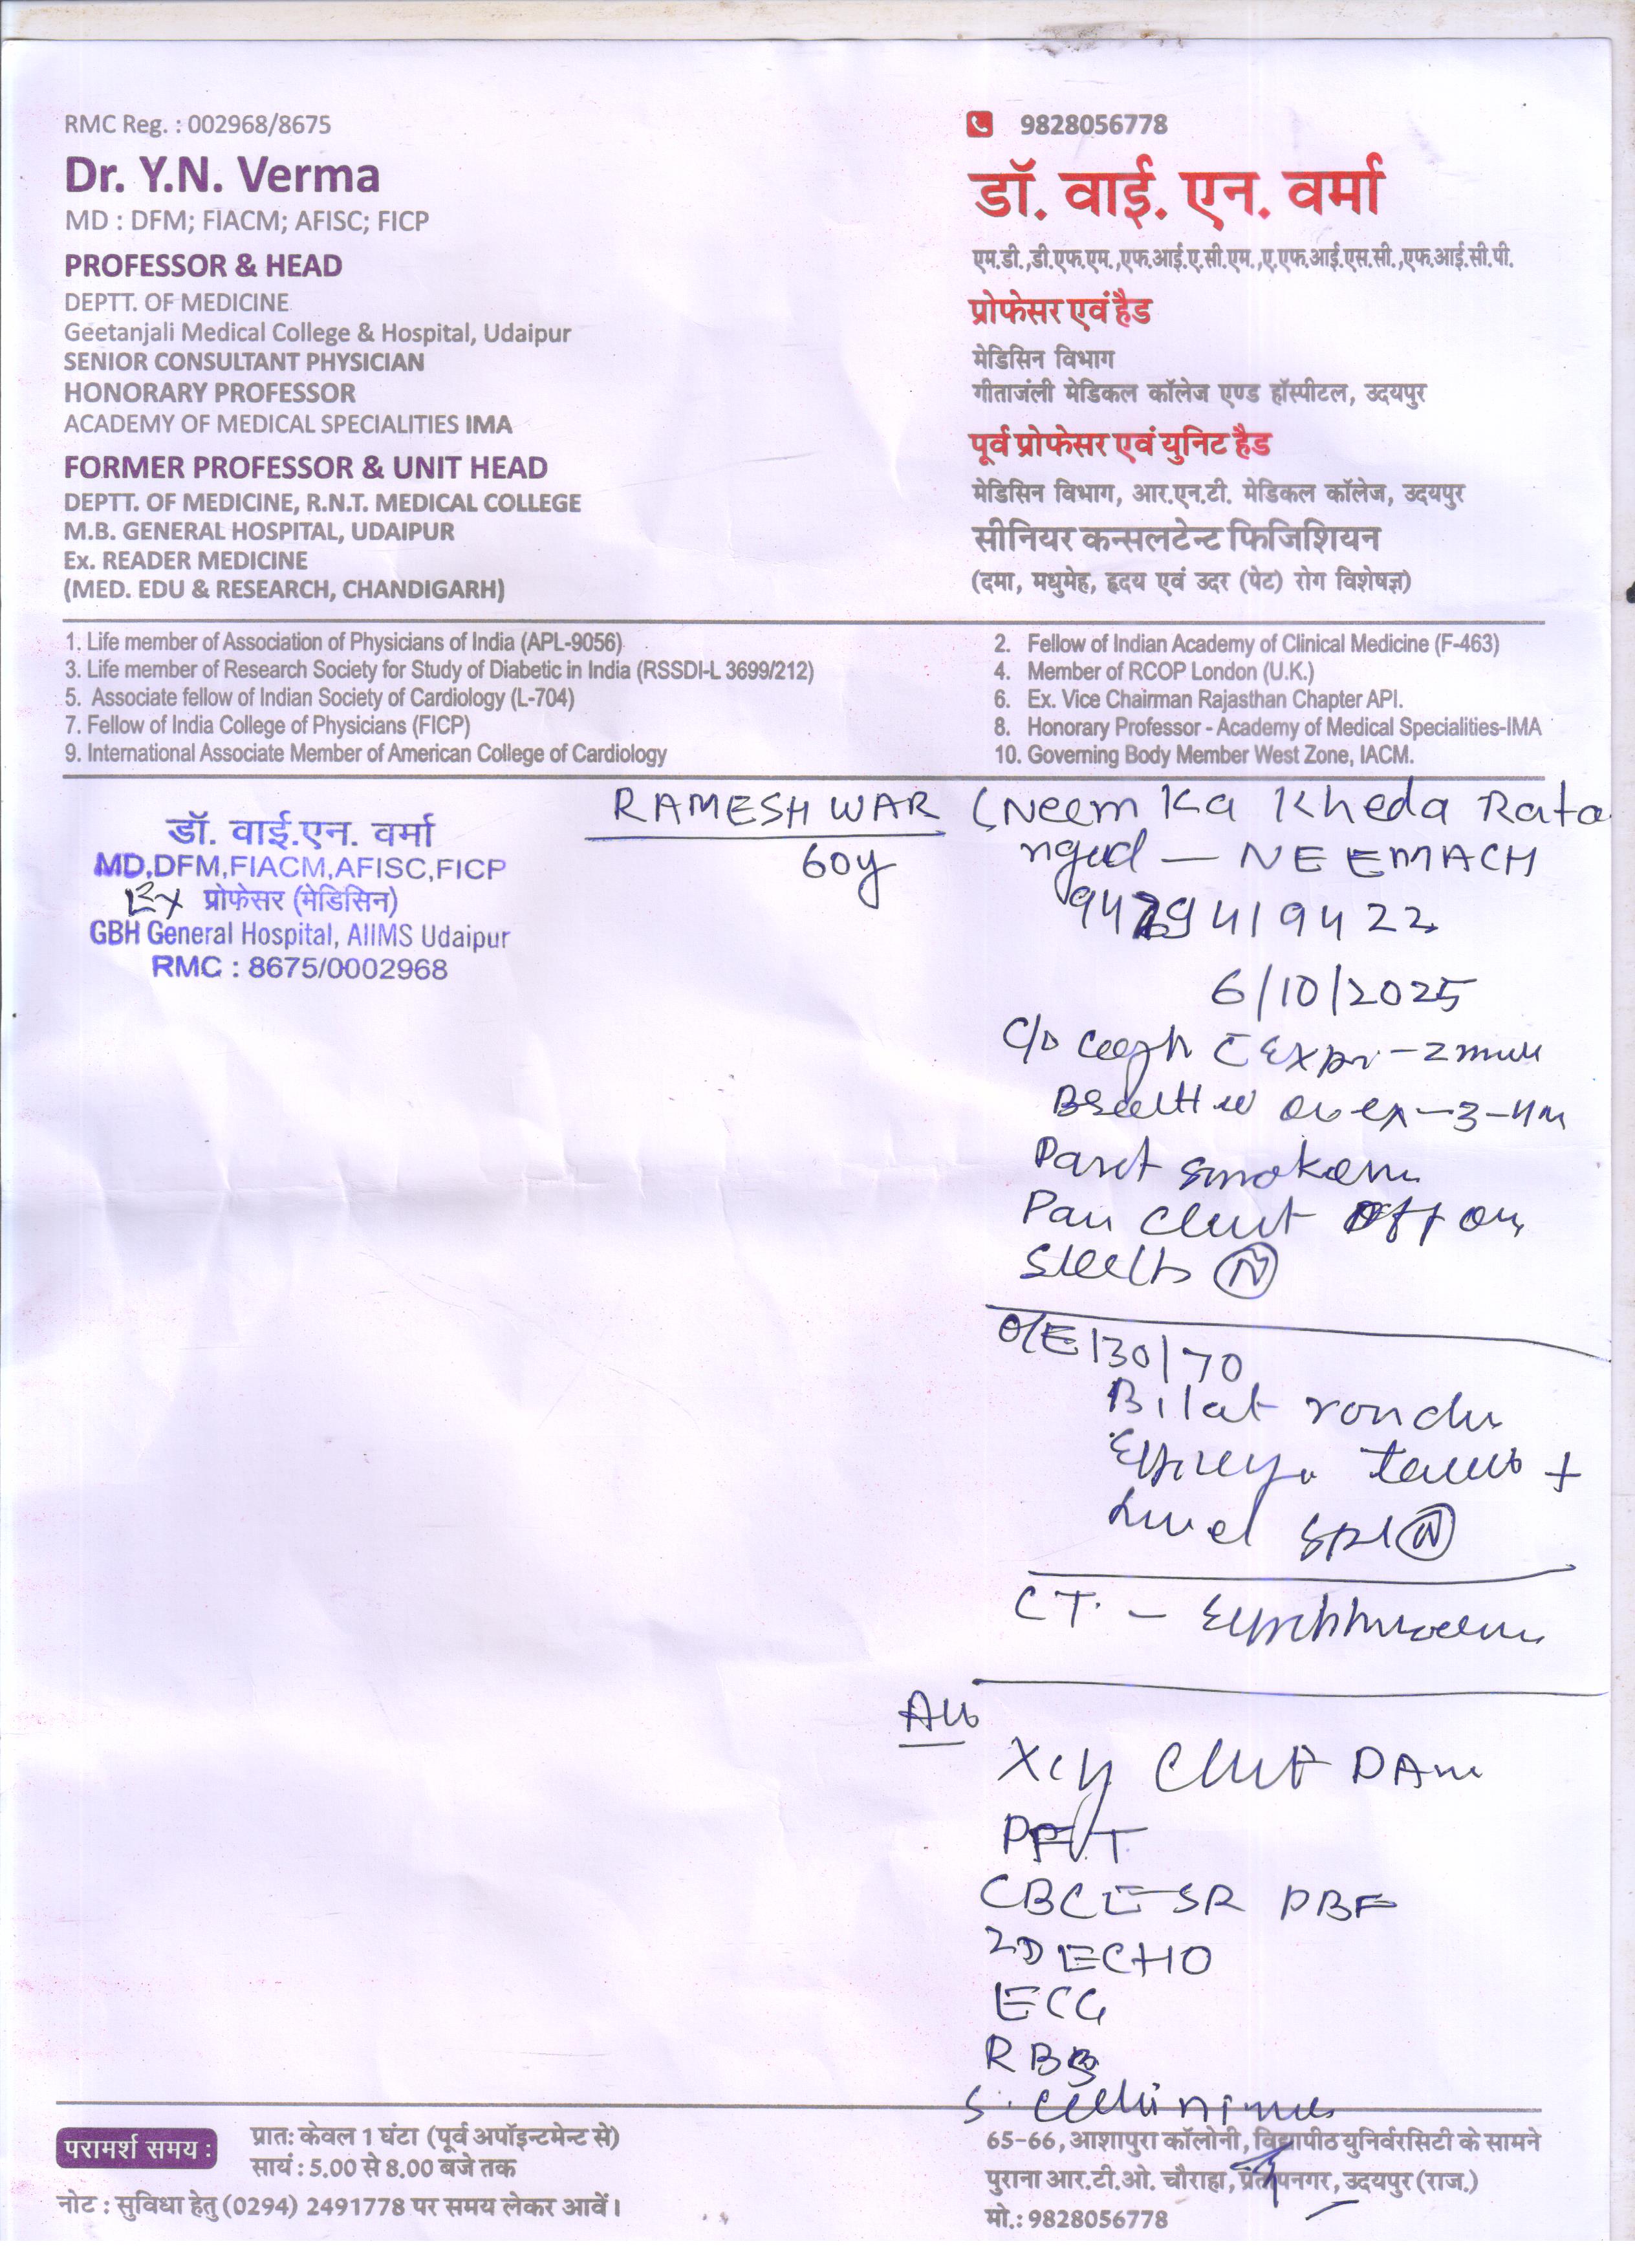 RMC Reg. : 002968/8675
Dr. Y.N. Verma
MD : DFM; FIACM; AFISC; FICP
PROFESSOR & HEAD
DEPTT. OF MEDICINE
Geetanjali Medical College & Hospital, Udaipur
SENIOR CONSULTANT PHYSICIAN
HONORARY PROFESSOR
ACADEMY OF MEDICAL SPECIALITIES IMA
FORMER PROFESSOR & UNIT HEAD
DEPTT. OF MEDICINE, R.N.T. MEDICAL COLLEGE
M.B. GENERAL HOSPITAL, UDAIPUR
Ex. READER MEDICINE
(MED. EDU & RESEARCH, CHANDIGARH)
9828056778
डॉ. वाई. एन. वर्मा
एम.डी.,डी.एफ.एम.,एफ.आई.ए.सी.एम.,ए.एफ.आई.एस.सी.,एफ.आई.सी.पी.
प्रोफेसर एवं हैड
मेडिसिन विभाग
गीताजंली मेडिकल कॉलेज एण्ड हॉस्पीटल, उदयपुर
पूर्व प्रोफेसर एवं युनिट हैड
मेडिसिन विभाग, आर.एन.टी. मेडिकल कॉलेज, उदयपुर
सीनियर कन्सलटेन्ट फिजिशियन
(दमा, मधुमेह, हृदय एवं उदर (पेट) रोग विशेषज्ञ)
1. Life member of Association of Physicians of India (APL-9056)
2. Fellow of Indian Academy of Clinical Medicine (F-463)
3. Life member of Research Society for Study of Diabetic in India (RSSDI-L 3699/212)
4. Member of RCOP London (U.K.)
5. Associate fellow of Indian Society of Cardiology (L-704)
6. Ex. Vice Chairman Rajasthan Chapter API.
7. Fellow of India College of Physicians (FICP)
8. Honorary Professor - Academy of Medical Specialities-IMA
9. International Associate Member of American College of Cardiology
10. Governing Body Member West Zone, IACM.
डॉ. वाई.एन. वर्मा
MD,DFM,FIACM,AFISC,FICP
Ex प्रोफेसर (मेडिसिन)
GBH General Hospital, AIIMS Udaipur
RMC : 8675/0002968
RAMESHWAR (Neem Ka Kheda Rata
60y
NEEMACH
6/10/2025
C/o
Past
off on
(N)
O/E 130/70
Bilat
+
(N)
CT. -
PFT
CBC ESR PBF
2D ECHO
ECG
RBS
S.
परामर्श समय :
प्रातः केवल 1 घंटा (पूर्व अपॉइन्टमेन्ट से)
सायं : 5.00 से 8.00 बजे तक
नोट : सुविधा हेतु (0294) 2491778 पर समय लेकर आवें।
65-66, आशापुरा कॉलोनी, विद्यापीठ युनिर्वरसिटी के सामने
पुराना आर.टी.ओ. चौराहा, प्रतापनगर, उदयपुर (राज.)
मो.: 9828056778